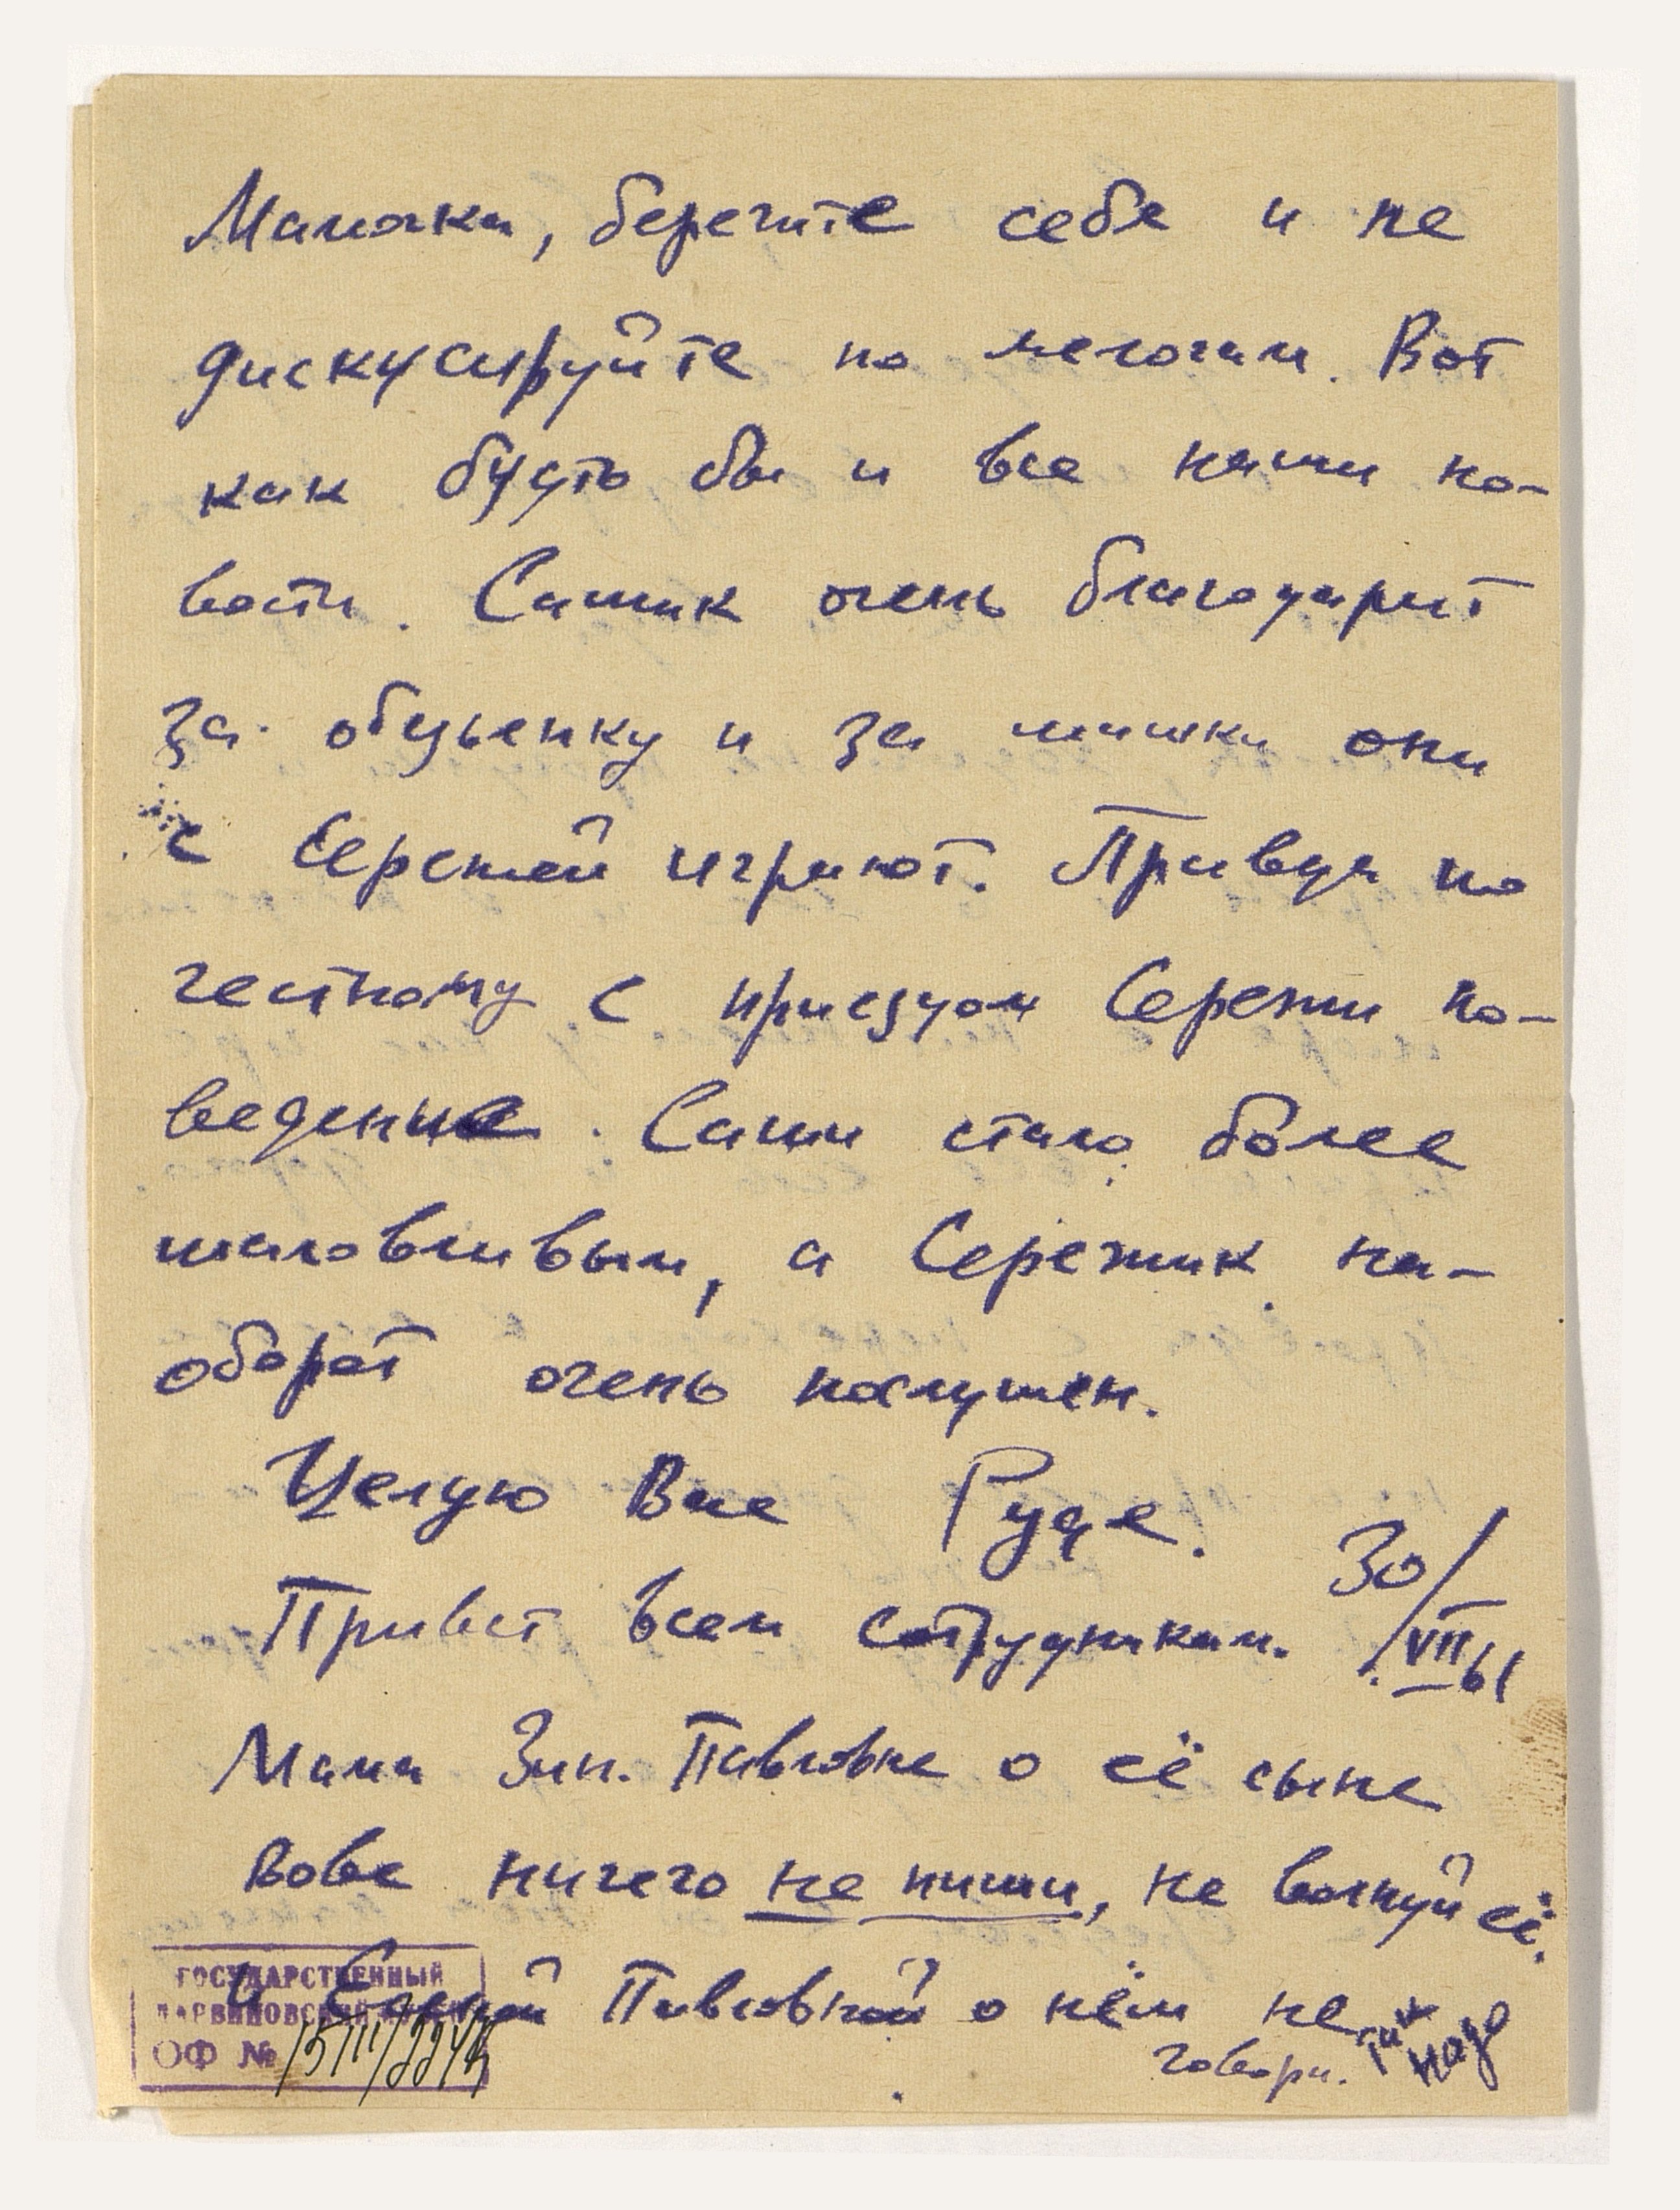 Мамочки, берегите себя и не
дискусируйте по мелочам. Вот
как будто бы и все наши но-
вости. Сашик очень благодарит
за обезьенку и за мишки они
с Сережей играют. Правда по
честному с приездом Сережи по-
ведение Саши стало более
шаловливым, а Сережик на-
оборот очень послушен.
Целую Вас Рудя.
30/VII 61
Привет всем сотрудникам.
Мама Зин. Павловне о её сыне
Вове ничего не пиши, не волнуй её.
И с Павловной о нём не
говори. так надо
ГОСУДАРСТВЕННЫЙ
ДАРВИНОВСКИЙ МУЗЕЙ
ОФ №